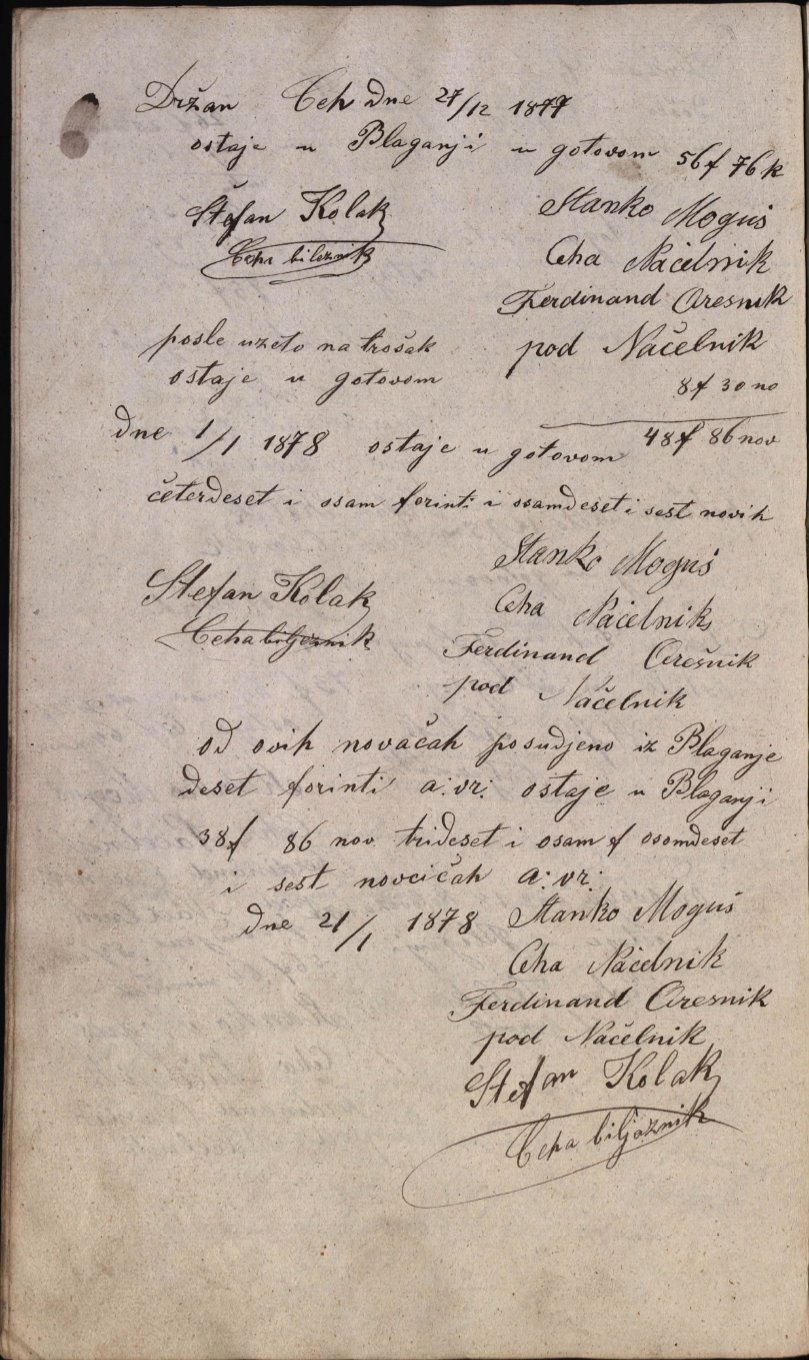 Držan Ceh dne 27/12 1877
ostaje u Blaganji u gotovom 56f 76k
Štefan Kolak
Ceha biležnik
Stanko Moguš
Ceha Načelnik
Ferdinand Oresnik
pod Načelnik
posle uzeto na trošak
ostaje u gotovom
8f 30 no
dne 1/1 1878 ostaje u gotovom 48f 86 nov
četerdeset i osam forinti i osamdeset i sest novih
Stefan Kolak
Ceha biljeznik
Stanko Moguš
Ceha Načelnik
Ferdinand Orešnik
pod Načelnik
od ovih novačah posudjeno iz Blaganje
deset forinti a:vr: ostaje u Blaganji
38f 86 nov trideset i osam f osomdeset
i sest novcičah a:vr:
dne 21/1 1878
Stanko Moguš
Ceha Načelnik
Ferdinand Oresnik
pod Načelnik
Stefan Kolak
Ceha biljoznik